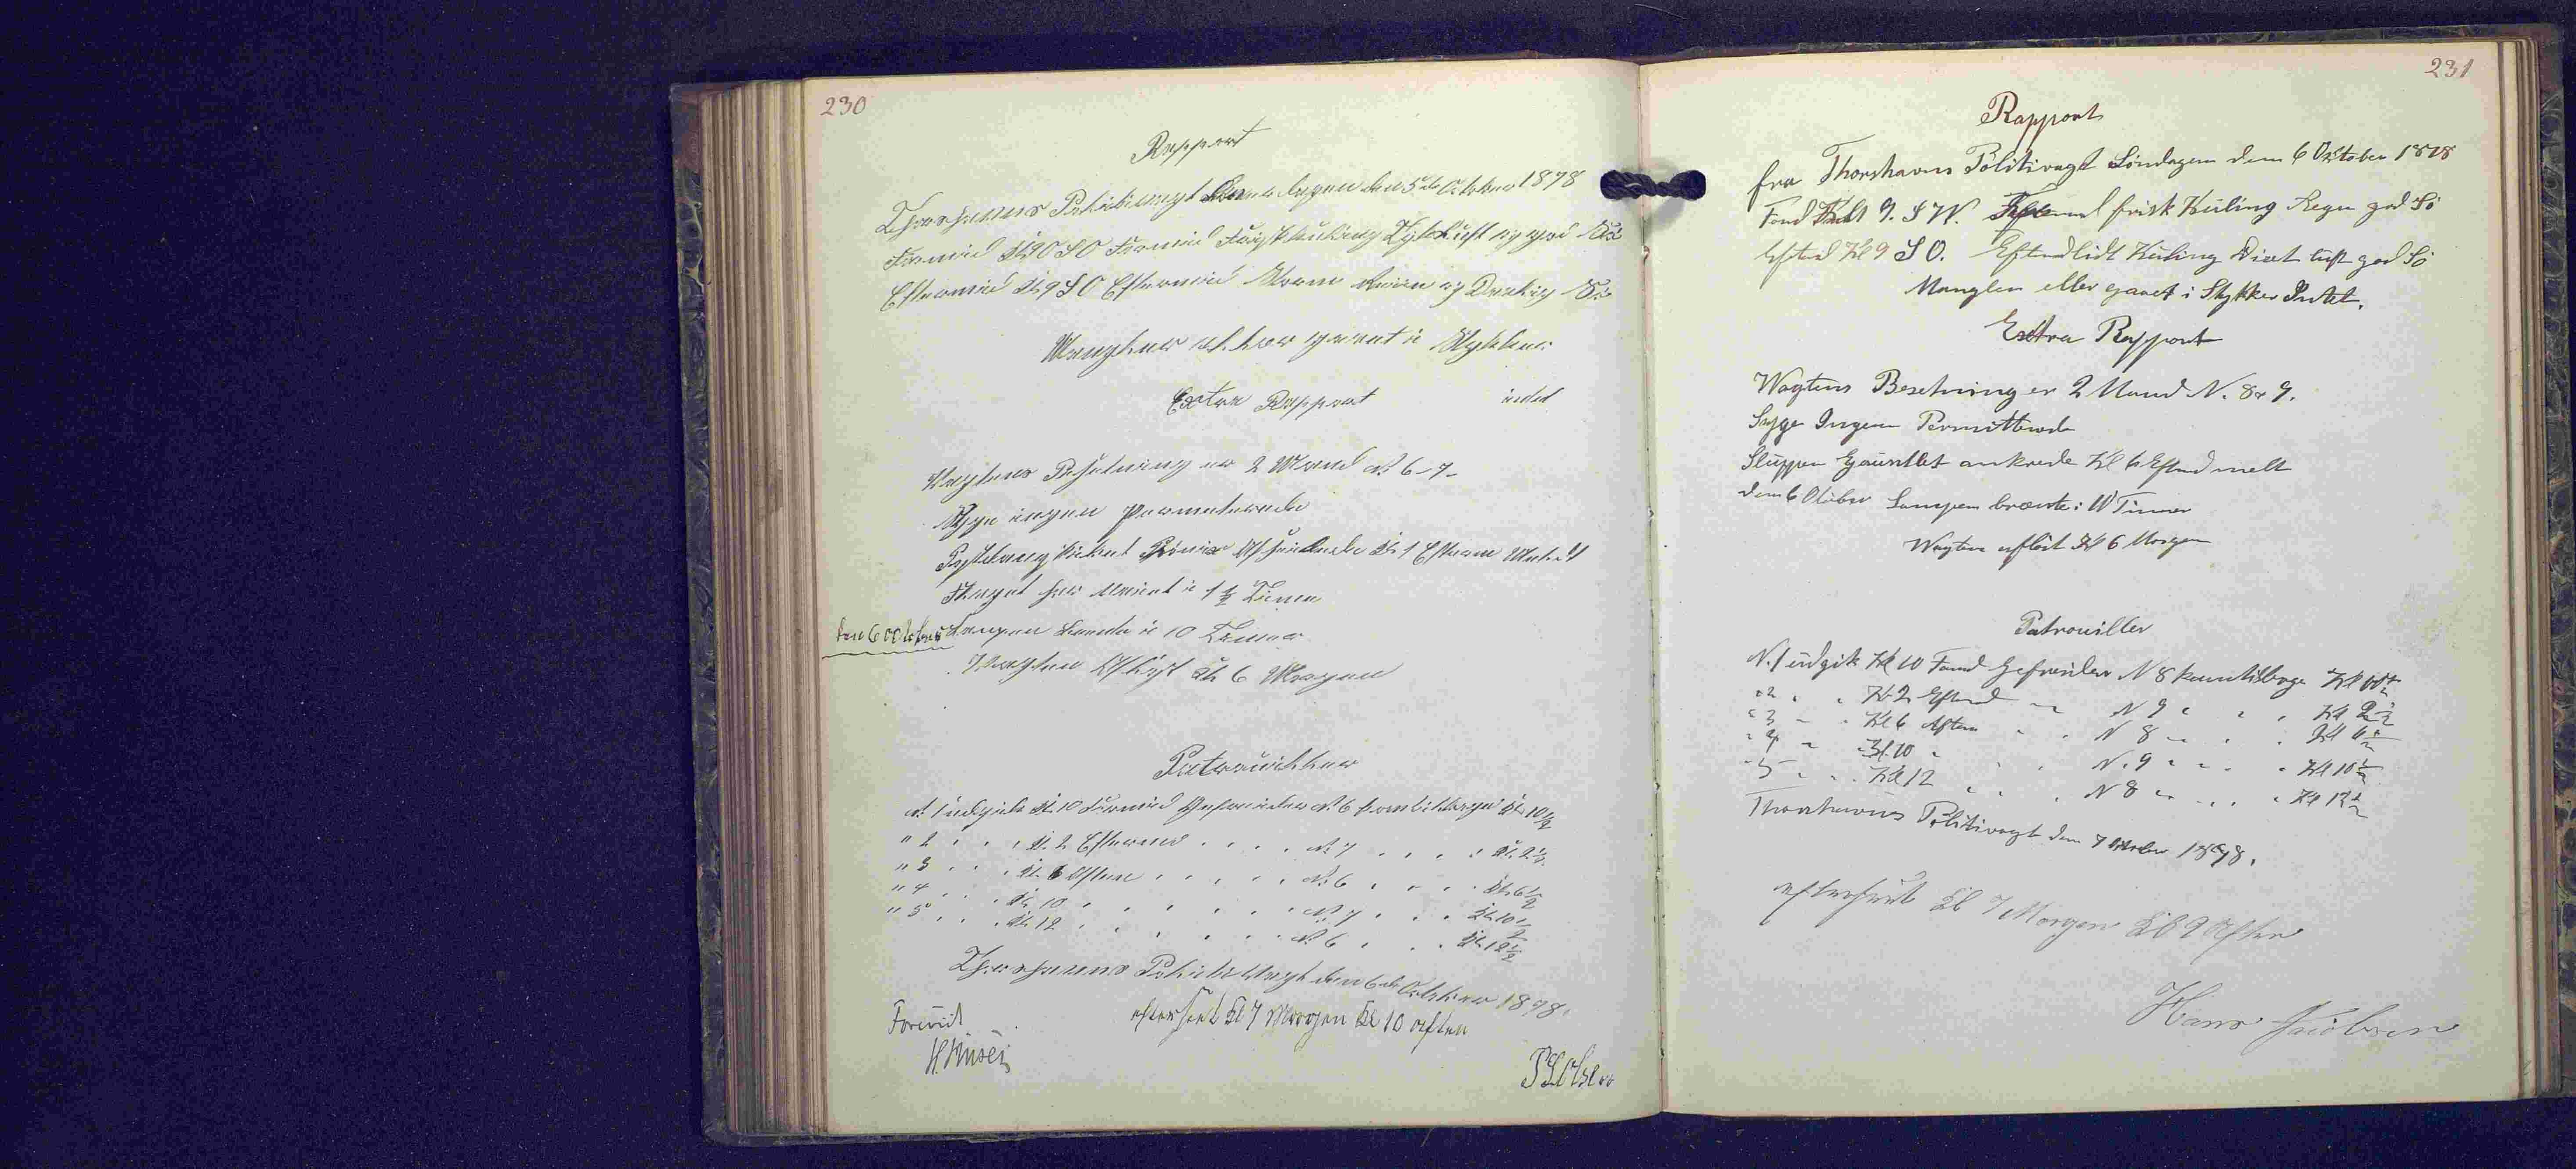 230
Rapport
Thorshavns Politivagt den 5te October 1878
Formid Kl 9 SO Formid Frisk Kuling Tyk Luft og god Sö
Eftermid Kl 9 SO Eftermid Storm Rein og Drokig Sö
Mangler eller gaaet i Stykker
Extra Rapport intet
Vagtens Besetning er 2 Mand N. 6-7-
Syge ingen Permeterede
Kl 1 Efterm
Flaget har Vaiet i 1½ Time
den 6 October Lampen brente i 10 Timer
Vagten Aflöst Kl 6 Morgen
Patrouiller
N. 1 udgik Kl. 10 Formid Gefreider N. 6 kom tilbage Kl. 10½
" 2 " " " Kl. 2 Eftermid " " " N. 7 " " " Kl. 2½
" 3 " " " Kl. 6 Aften " " " N. 6 " " " Kl. 6½
" 4 " " " Kl. 10 " " " N. 7 " " " Kl. 10½
" 5 " " " Kl. 12 " " " N. 6 " " " Kl. 12½
Thorshavns Politi Vagt den 6te October 1878.
efterseet Kl 7 Morgen Kl 10 Aften
Forevist
231
Rapport
fra Thorshavns Politivagt Söndagen den 6 October 1878
Formd Kl 9. S W. frisk Kuling Regn god Sö
Eftmd Kl 9 S O. Eftmd lidt Kuling Diset luft god Sö
Mangler eller gaaet i Stykker Intet.
Extra Rapport
Wagtens Besetning er 2 Mand N. 8 & 9.
Syge Ingen Permitterede
Sluppen Gauntlet ankrede Kl 6 Eftmd melt
den 6 October Lampen brænte i 10 Timer
Wagten aflöst Kl 6 Morgen
Patrouiller
N. 1 udgik Kl 10 Formd Gefreider N 8 kom tilbage Kl 10½
" 2 " " Kl. 2 Eftmd " N 9 " " " Kl 2½
" 3 " " Kl 6 Aften " " N 8 " " " Kl 6½
" 4 " " Kl. 10 " " " N. 9 " " " Kl 10½
" 5 " " Kl 12 " " " N 8 " " " Kl 12½
Thorshavns Politivagt den 7 October 1878.
efterseet Kl 7 Morgen Kl 9 Aften
Hans Jacobsen